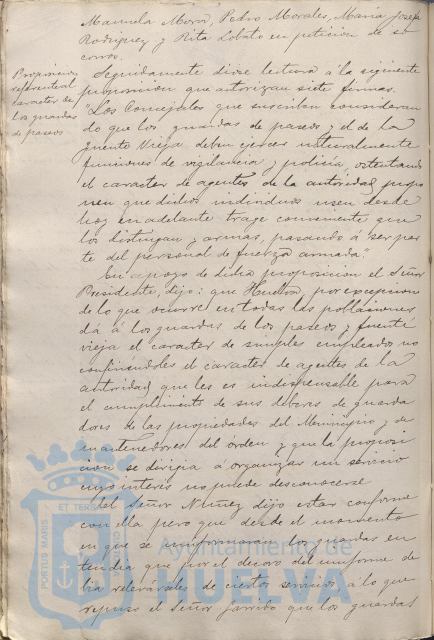 Manuela Mora, Pedro Morales, María Josefa
Rodriguez y Rita Lobato en peticion de so
corros.
Proposicion
referente al
caracter de
los guardas
de paseos
Seguidamente diose lectura á la siguiente
proposicion que autorizan siete firmas.
"Los Concejales que suscriben consideran
do que los guardas de paseos y el de la
fuente Vieja deben ejercer naturalmente
funciones de vigilancia y policia, ostentando
el caracter de agentes de la autoridad, propo
nen que dichos individuos usen desde
hoy en adelante traje conveniente que
los distingan y armas, pasando á ser par
te del personal de fuerza armada."
En apoyo de dicha proposicion el Señor
Presidente, dijo: que Huelva, por excepcion
de lo que ocurre en todas las poblaciones
dá á los guardas de los paseos y fuente
vieja el caracter de simples empleados no
confiriéndoles el caracter de agentes de la
autoridad, que les es indispensable para
el cumplimiento de sus deberes de guarda
dores de las propiedades del Municipio y de
mantenedores del órden y que la proposi
cion se dirigia á organizar un servicio
cuyo interés no puede desconocerse
El Señor Nuñez dijo estar conforme
con ella pero que desde el momento
en que se uniformaran los guardas en
tendia que por el decoro del uniforme de
bia relevárseles de ciertos servicios á lo que
repuso el Señor Garrido que los guardas
ET TERRAE
PORTUS MARIS
CUSTODIA
Ayuntamiento de
HUELVA